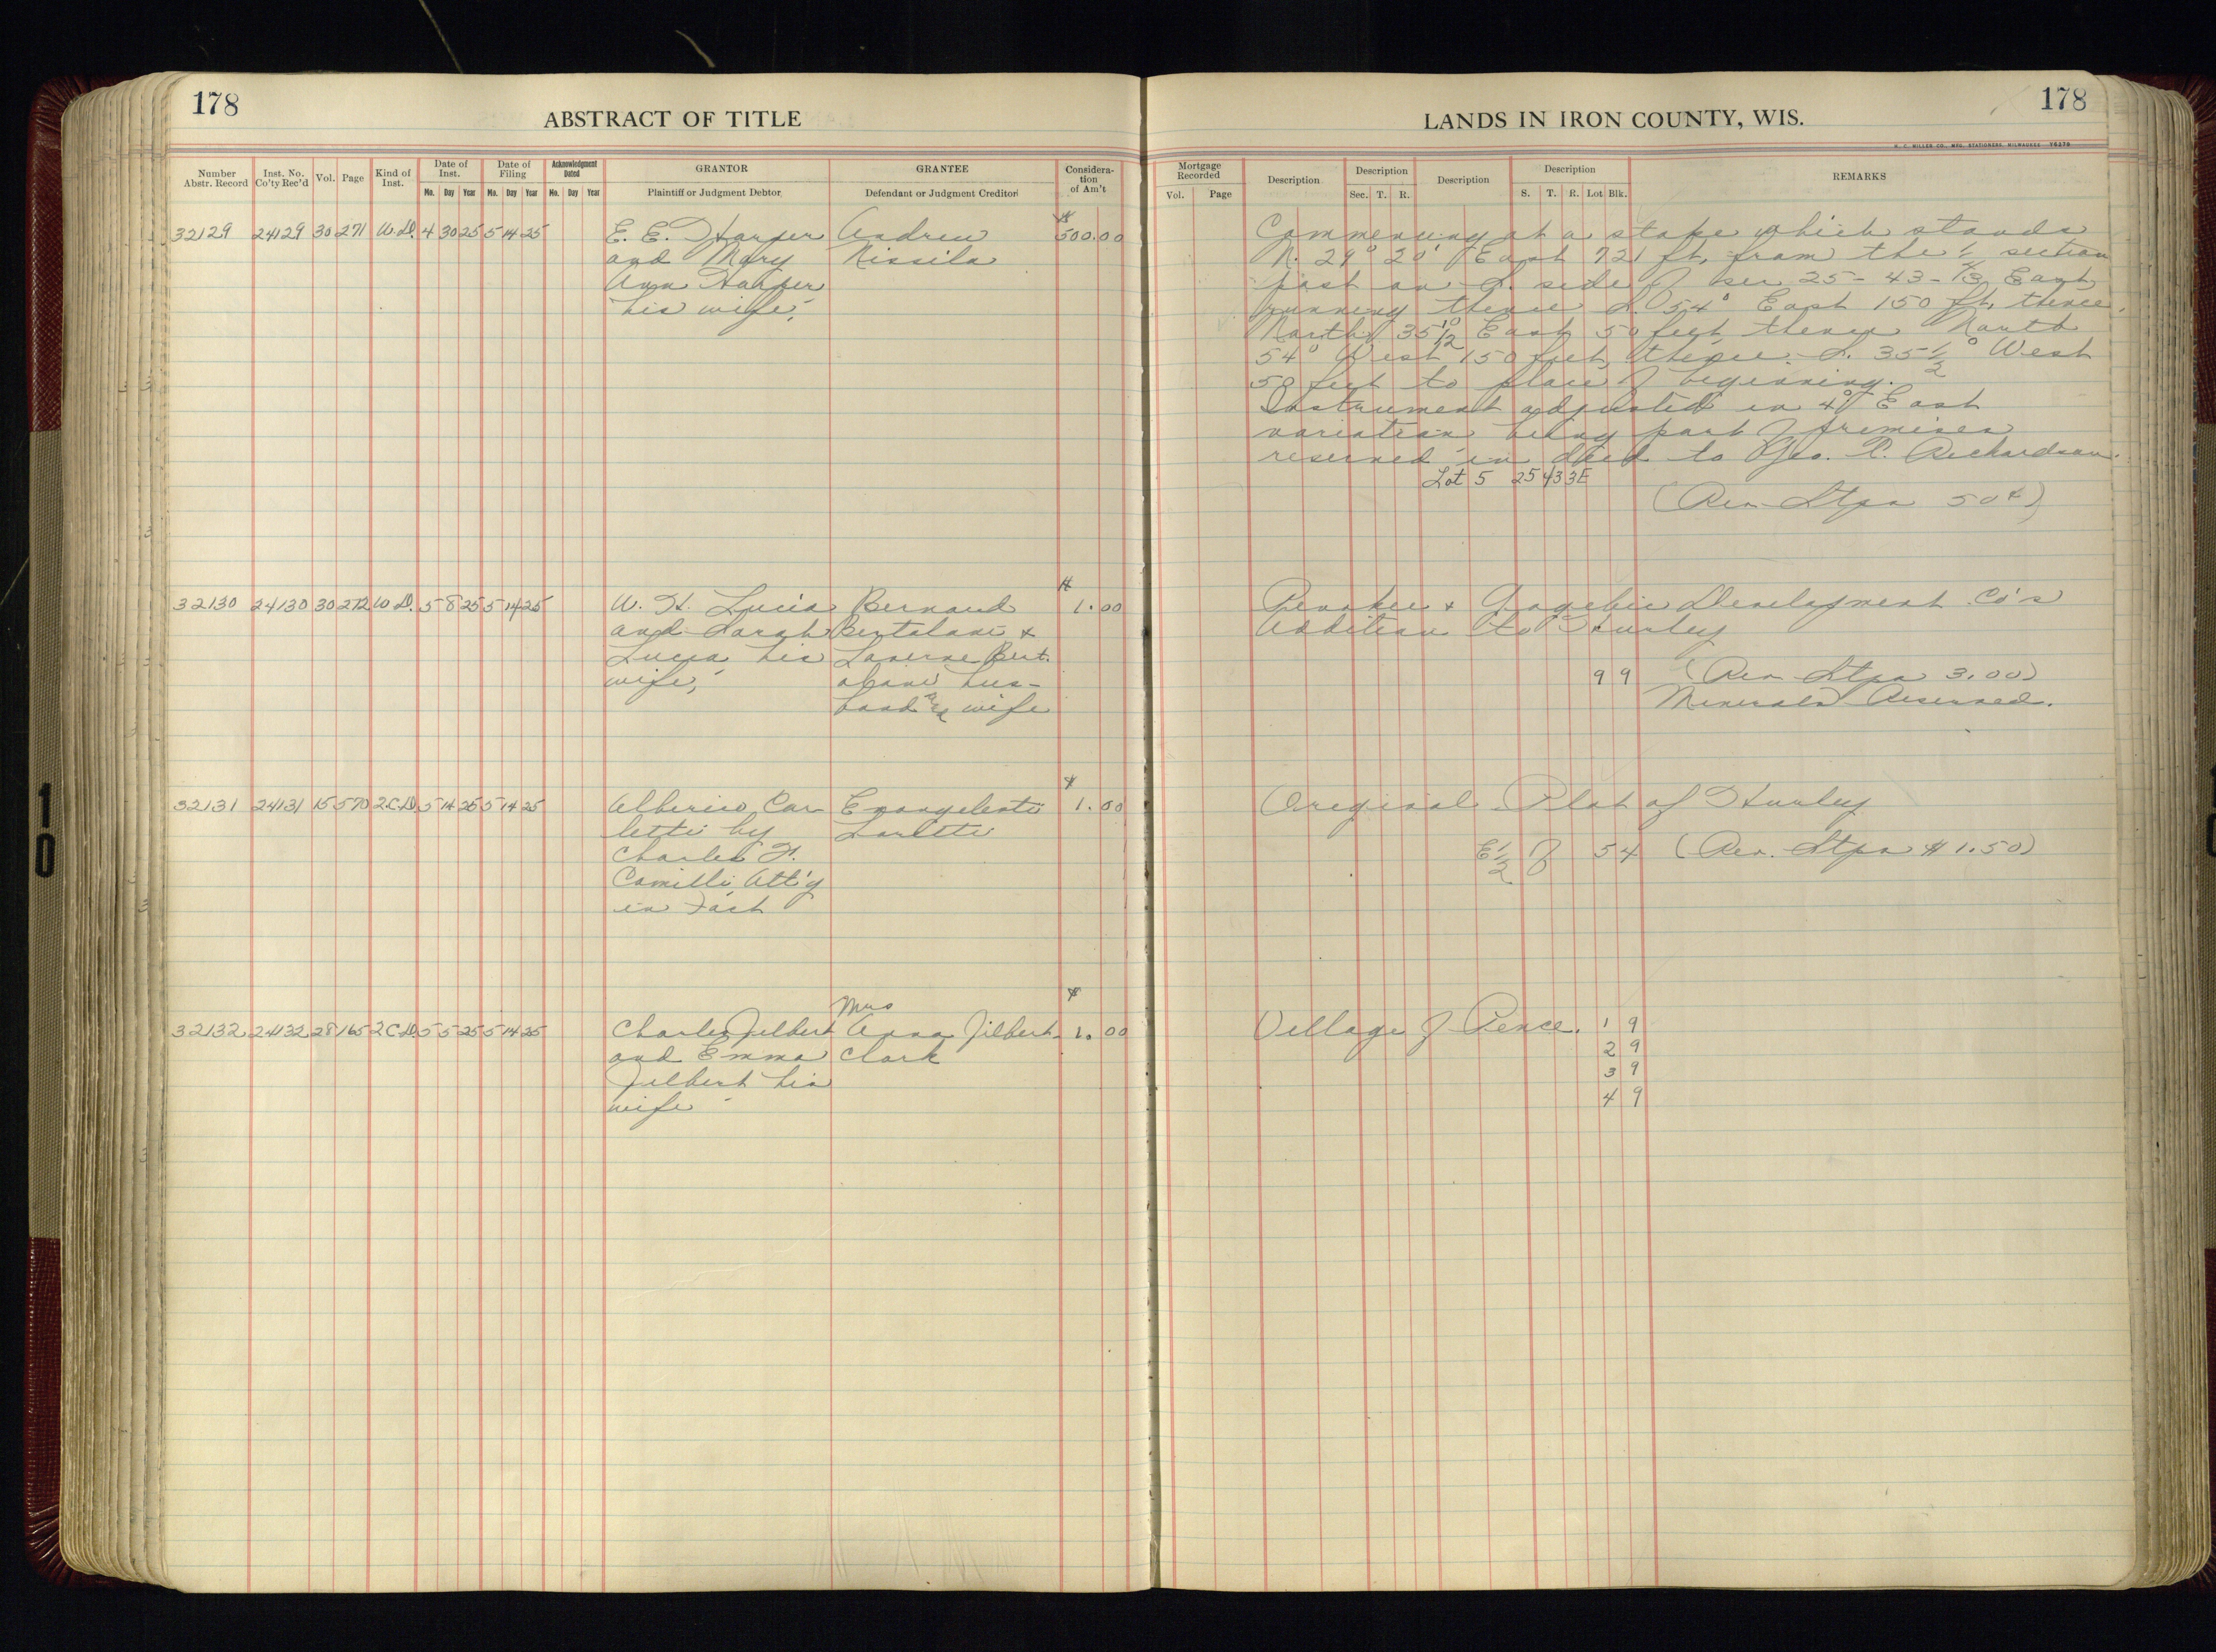 178
ABSTRACT OF TITLE
Number Abstr. Record
Inst. No. Co'ty Rec'd
Vol.
Page
Kind of Inst.
Date of Inst.
Mo. Day Year
Date of Filing
Mo. Day Year
Acknowledgment Dated
Mo. Day Year
GRANTOR
Plaintiff or Judgment Debtor
GRANTEE
Defendant or Judgment Creditor
Considera-
tion
of Am't
32129 24129 30 271 W.D. 4 30 25 5 14 25 E. E. Harper Andrew $500.00
and Mary Nissila
Ann Harper
his wife,
32130 24130 30 272 W.D. 5 8 25 5 14 25 W. H. Lucia Bernard $1.00
and Sarah Bertalani &
Lucia his Laverne Bert.
wife, alani hus-
band and wife
32131 24131 15 570 2.C.D. 5 14 25 5 14 25 Alberico Car Evangelesti $1.00
letti by Loretti
Charles F.
Camilli, Att'y
in Fact
Mrs
32132 24132 28 165 2.C.D. 5 5 25 5 14 25 Charles Jilbert Anna Jilbert $1.00
and Emma Clark
Jilbert his
wife
178
LANDS IN IRON COUNTY, WIS.
H. C. MILLER CO. MFG. STATIONERS, MILWAUKEE
Mortgage Recorded
Vol. Page
Description
Description
Sec. T. R.
Description
Description
S. T. R. Lot Blk.
REMARKS
Commencing at a stake which stands
N. 29° 20' East 721 ft. from the 1/4 section
post on S. side of sec 25 - 43 - 3 East
running thence S. 54° East 150 ft. thence
North 35 1/2° East 50 feet, thence North
54° West 150 feet, thence S. 35 1/2° West
50 feet to place of beginning.
Instrument adjusted in 4° East
variation being part of premises
reserved in deed to Geo. R. Richardson.
Lot 5 25 43 3E
(Rev Stps 50¢)
Penokee & Gogebic Development Co's
Addition to Hurley
9 9 (Rev Stps 3.00)
Minerals Reserved.
Original Plat of Hurley
E 1/2 of 5 4 (Rev. Stps $1.50)
Village of Pence. 1 9
2 9
3 9
4 9